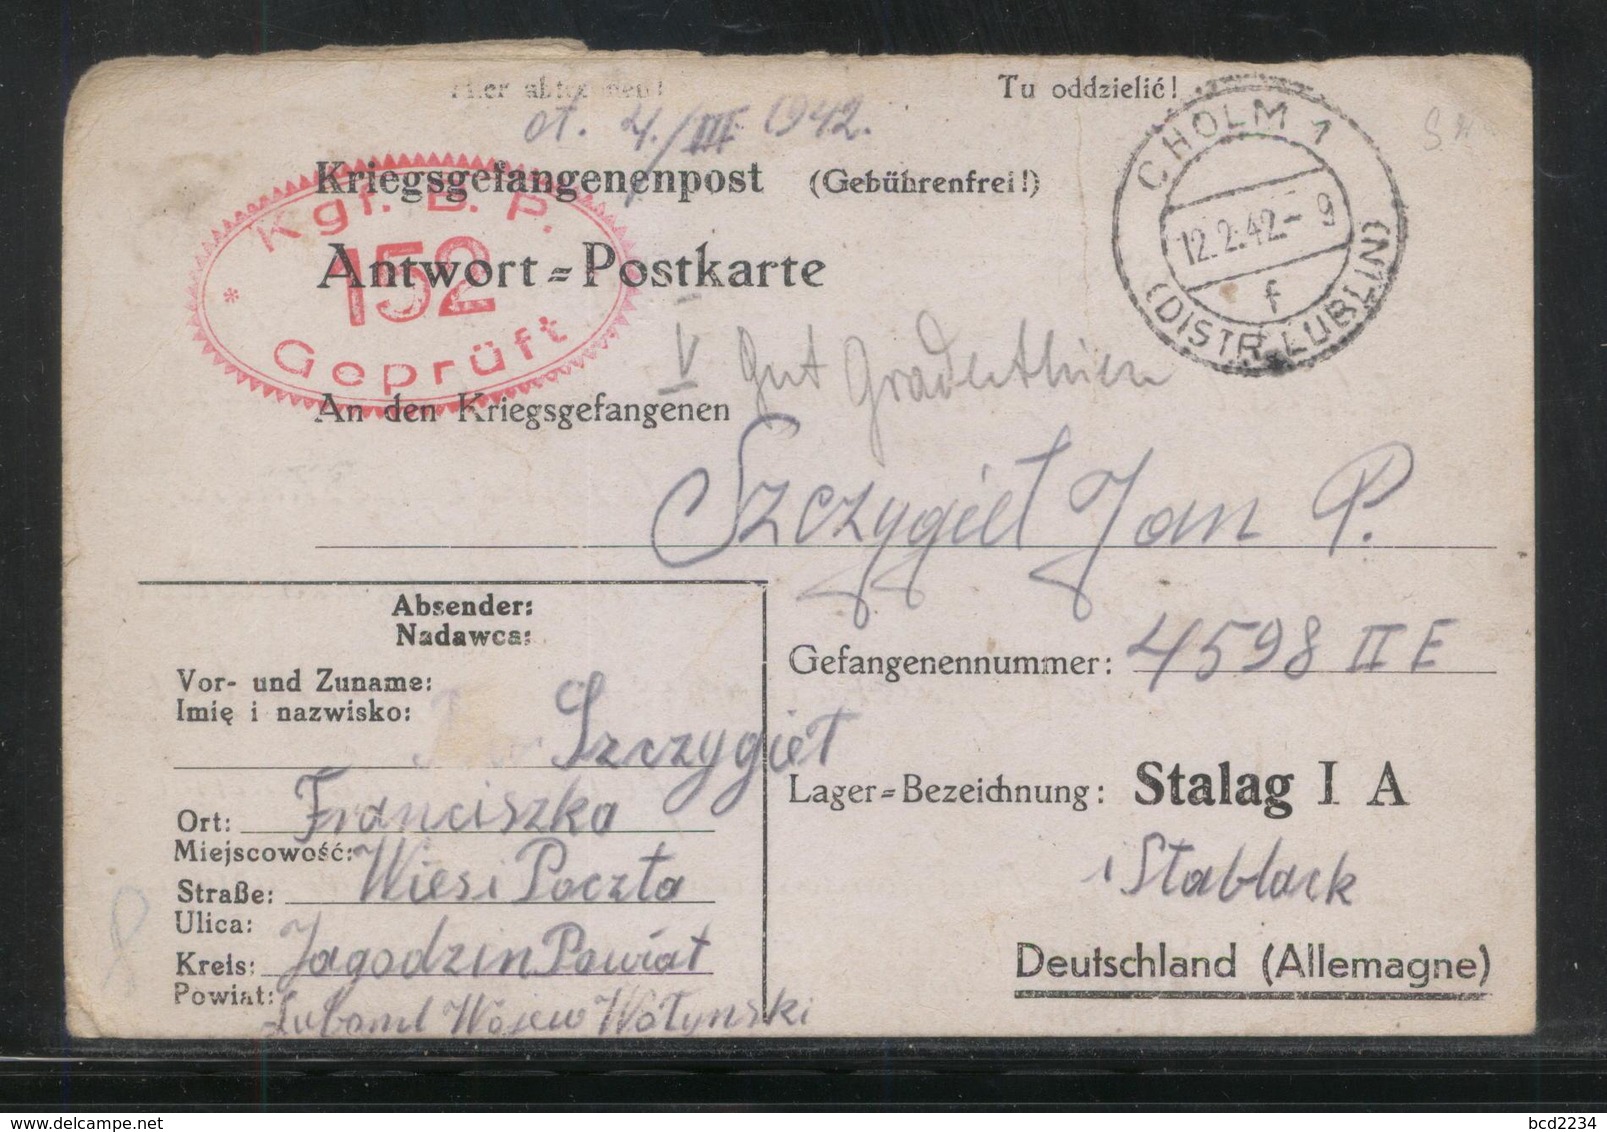 Hier abtrennen! Tu oddzielić!
ot. 4./III 1942.
Kriegsgefangenenpost (Gebührenfrei!)
Antwort=Postkarte
Kgf. B. P.
152
* Geprüft
CHOLM 1
12.2.42.- 9
f
(DISTR. LUBLIN)
V Gut
An den Kriegsgefangenen
Szczygieł Jan P.
Absender:
Nadawca:
Gefangenennummer: 4598 II E
Vor- und Zuname:
Imię i nazwisko:
Szczygieł
Lager=Bezeichnung: Stalag I A
Ort: Franciszka
Miejscowość:
Straße: Wieś i Poczta
Ulica:
Stablack
Kreis: Jagodzin Powiat
Powiat: Luboml Wojew Wołynski
Deutschland (Allemagne)
delcampe.net
bcd2234